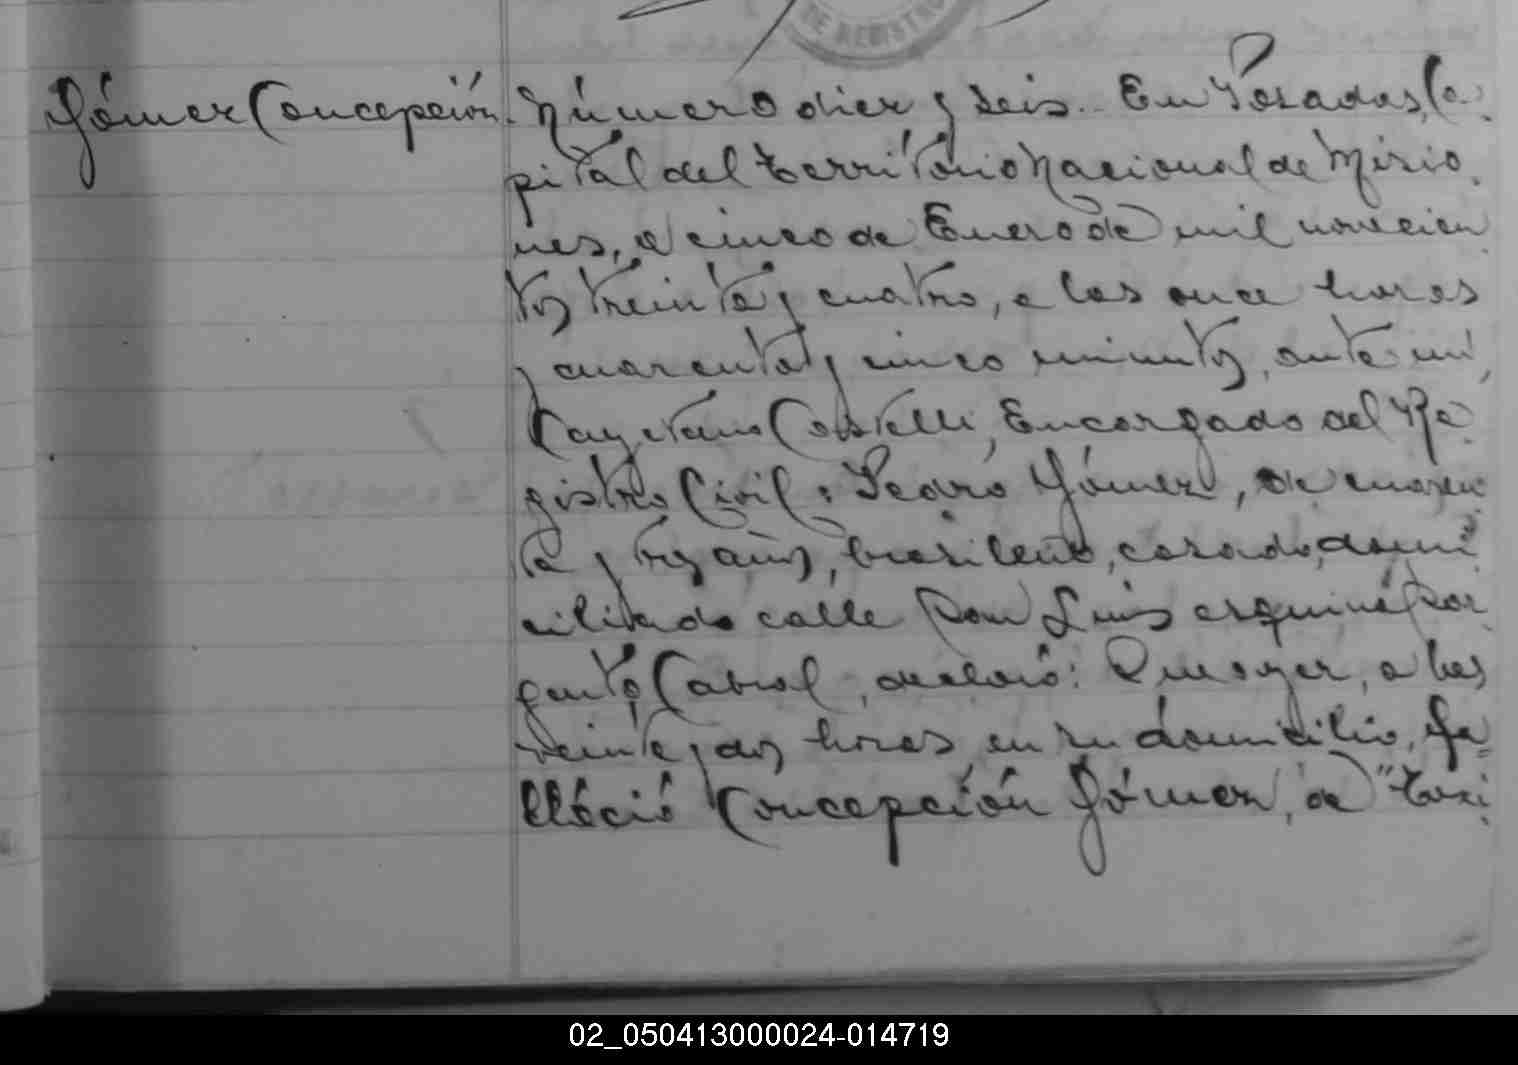 DE REGISTRO
Gómez Concepción. Número diez y seis. En Posadas, Ca-
pital del Territorio Nacional de Misio-
nes, a cinco de Enero de mil novecien
tos treinta y cuatro, a las once horas
y cuarenta y cinco minutos, ante mí,
Cayetano Castelli, Encargado del Re-
gistro Civil: Pedro Gómez, de cuaren
ta y tres años, brasileño, casado, domi-
ciliado calle San Luis esquina Sar
gento Cabral, declaró: Que ayer, a las
veinte y dos horas, en su domicilio, fa-
lleció Concepción Gómez, de "toxi-
02_050413000024-014719